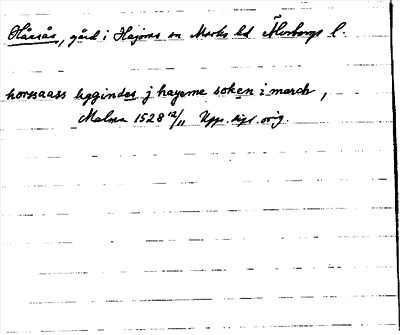 Hårsås, gård i Hajoms sn Marks hd Älvsborgs l.
horssaass liggindes j hayeme soken i march,
Malma 1528 12/11 Upps. dipl. orig.